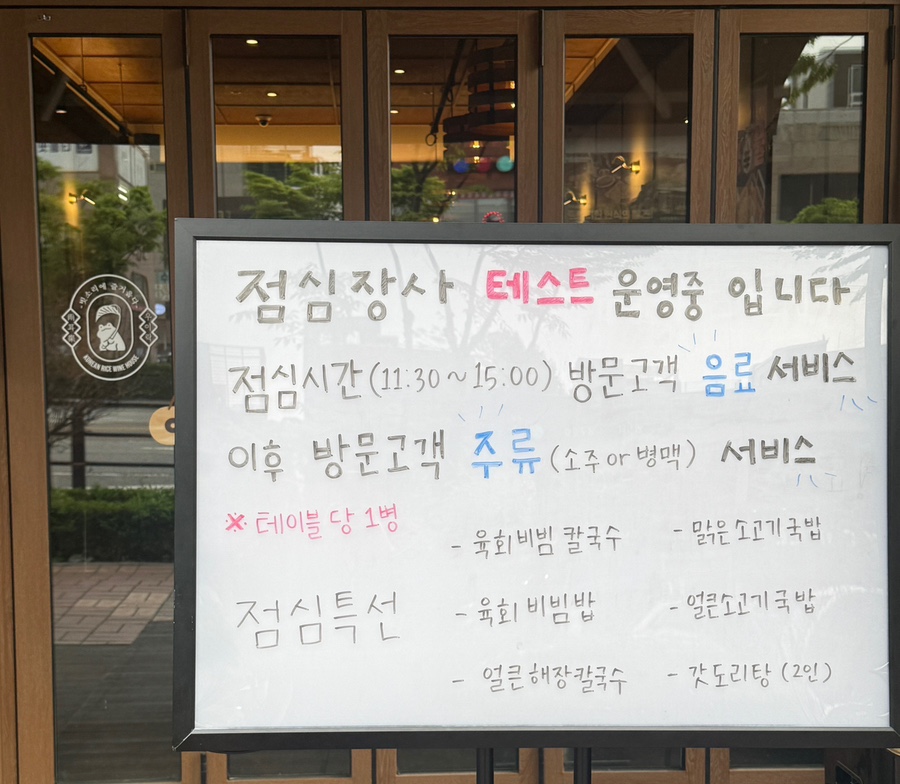 점심장사 테스트 운영중 입니다
점심시간(11:30~15:00) 방문고객 음료 서비스
이후 방문고객 주류(소주 or 병맥) 서비스
※ 테이블 당 1병
점심특선
- 육회비빔 칼국수
- 육회 비빔밥
- 얼큰해장칼국수
- 맑은소고기국밥
- 얼큰소고기국밥
- 갓도리탕 (2인)
KOREAN RICE WINE HOUSE